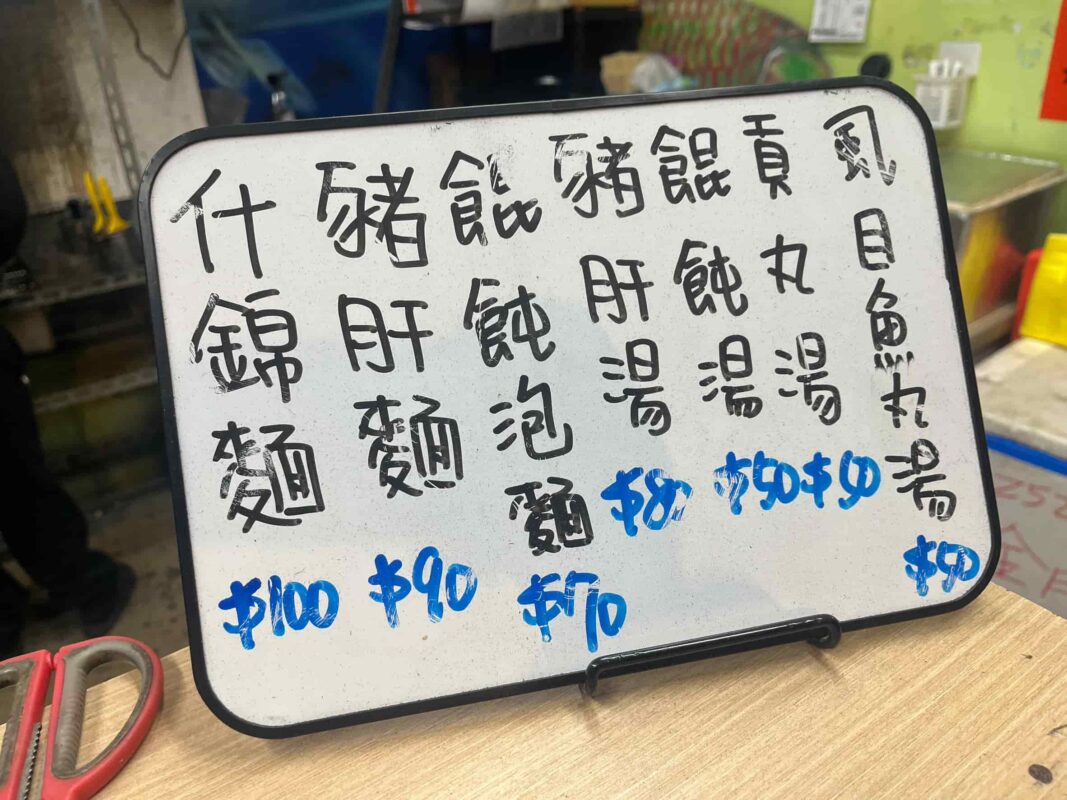 虱目魚丸湯 $50
貢丸湯 $50
餛飩湯 $50
豬肝湯 $80
餛飩泡麵 $70
豬肝麵 $90
什錦麵 $100